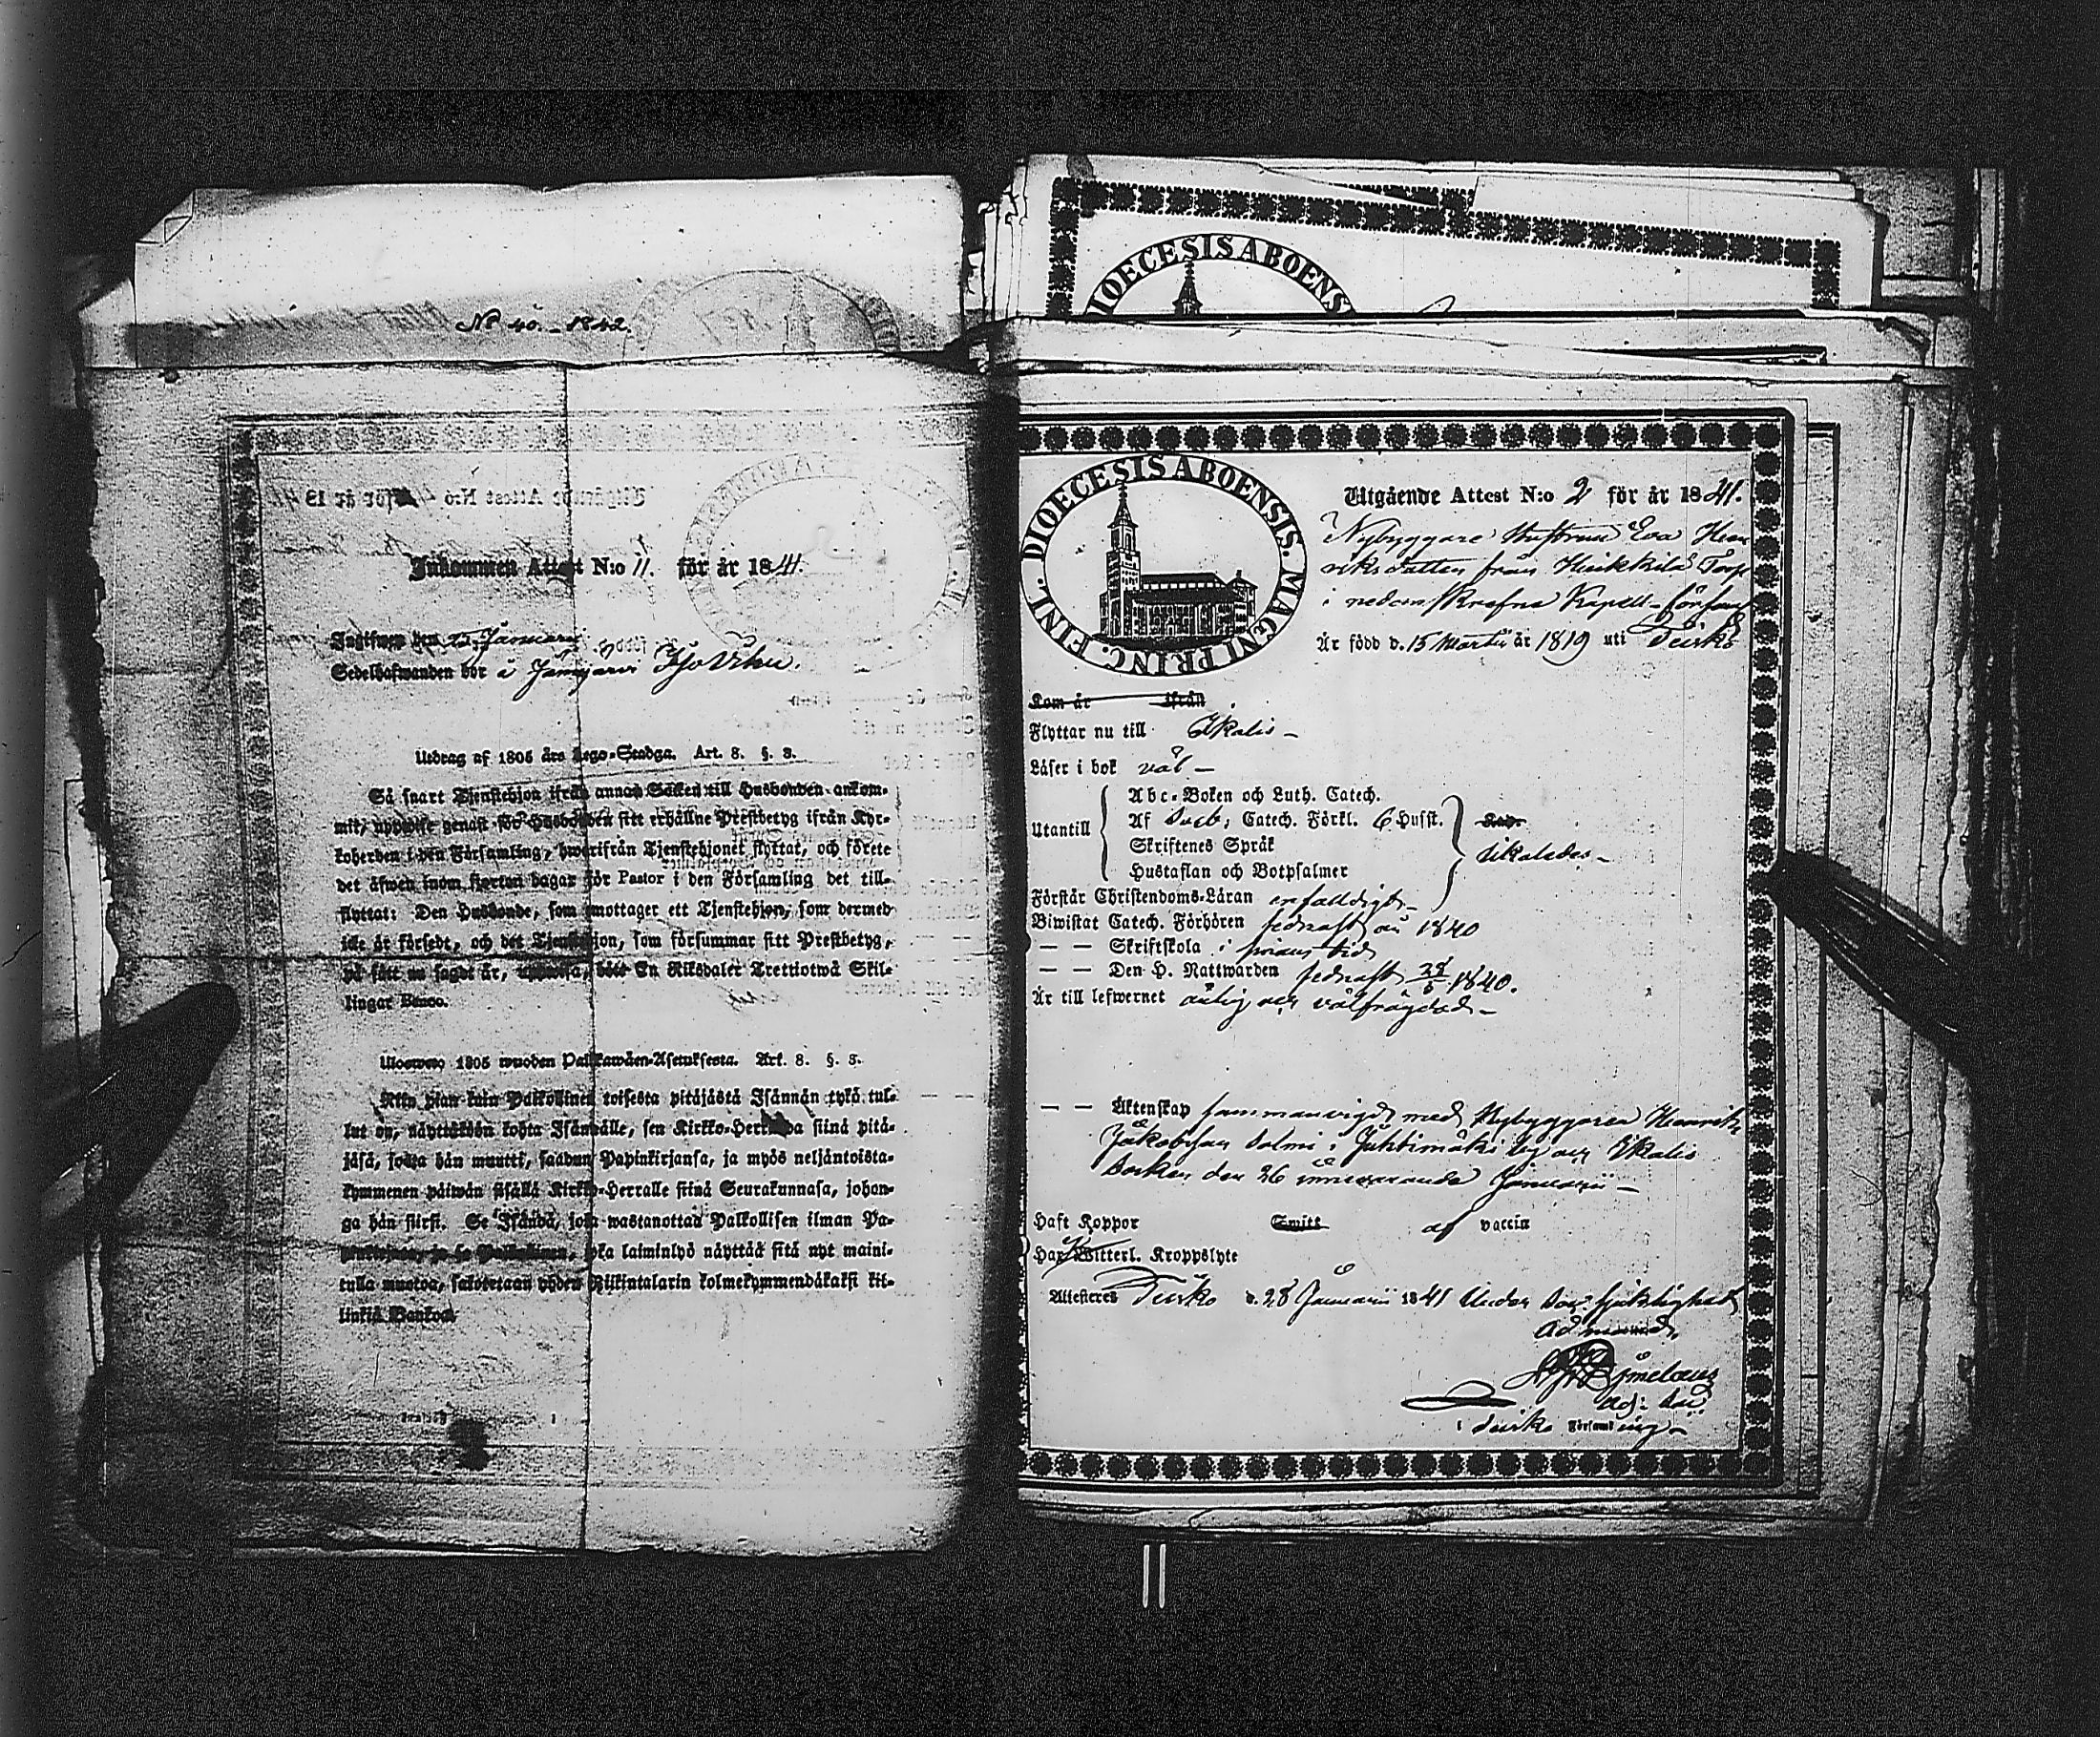 No 40. – 1842.
Inkommen Attest N:o 11. för år 1841.
Ingifwen den Januarii
Sedelhafwanden bor å Jämijärvi
Utdrag af 1805 års Lego-Stadga. Art. 8. §. 3.
Så snart Tjenstehjon ifrån annan Socken till Husbonden ankom-
mit, uppwise genast för Husbonden sitt erhållne Prestbetyg ifrån Kyr-
koherden i den Församling, hwarifrån Tjenstehjonet flyttat, och förete
det äfwen inom fjorton dagar för Pastor i den Församling det till-
flyttat: Den Husbonde, som emottager ett Tjenstehjon, som dermed
icke är försedt, och det Tjenstehjon, som försummar sitt Prestbetyg,
på sätt nu sagdt är, uppwisa, böte En Riksdaler Trettiotwå Skil-
lingar Banco.
Ulosweto 1805 wuoden Palkawäen-Asetuksesta. Art. 8. §. 3.
Niin pian kuin Palkollinen toisesta pitäjästä Isännän tykö tul-
lut on, näyttäköön kohta Isännälle, sen Kirkko-Herralda siinä pitä-
jäsä, josta hän muutti, saadun Papinkirjansa, ja myös neljäntoista-
kymmenen päiwän sisällä Kirkko-Herralle siinä Seurakunnasa, johon-
ga hän siirsi. Se Isändä, joka wastanottaa Palkollisen ilman Pa-
pinkirjaa, ja se Palkollinen, joka laiminlyö näyttää sitä nyt maini-
tulla muotoa, sakotetaan yhden Rijkintalarin kolmekymmendäkaksi kil-
linkiä Bankosa
DIOECESIS ABOENS
DIOECESIS ABOENSIS. MAGNI PRINC. FINL.
Utgående Attest N:o 2 för år 1841.
Nybyggare Hustrun Eva Hen
riksdotter från Heikkilä Torp
i nedanskrefne Kapell-församl
Är född d. 15 Martii år 1819 uti
Kom år ifrån
Flyttar nu till Ikalis –
Läser i bok väl –
Utantill
Abc-Boken och Luth. Catech.
Af Catech. Förkl. 6 Hufst.
Skriftenes Språk
Hustaflan och Botpsalmer
likaledes –
Förstår Christendoms-Läran enfaldigt –
Biwistat Catech. Förhören sednast år 1840
– – Skriftskola i sinom tid
– – Den H. Nattwarden sednast 1840.
Är till lefwernet ärlig och välfrägdad –
– – Äktenskap sammanvigd med Nybyggaren Henrik
Jakobsson Salmi i Jyhtimäki by och Ikalis
Socken den 26 innevarande Januarii –
Haft Koppor Smitt af vaccin
Har Witterl. Kroppslyte
Attesteras d. 28 Januarii 1841 Under Soc: sjuklighet
i Församl ing –